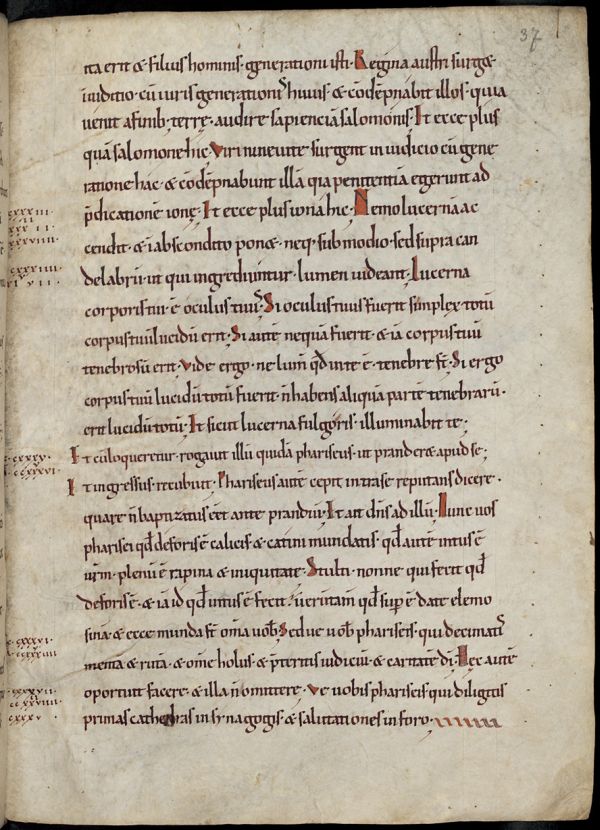 37
ita erit & filius hominis · generationi isti · Regina austri surg&
iuditio · cū uiris generationis huius · & cōdēpnabit illos · quia
uenit a finib; terrę · audire sapienciā salomonis · Et ecce plus
quā salomone hic · Viri nineuite surgent in iudicio cū gene
ratione hac · & cōdēpnabunt illā q̄a penitentiā egerunt ad
p̄dicationē ionę · Et ecce plus iona hic · Nemo lucernā ac
cendit · & i abscondito pon& · neq · sub modio · sed supra can
delabrū · ut qui ingrediuntur · lumen uideant · Lucerna
corporis tui · ē oculus tuus · Si oculus tuus fuerit simplex · totū
corpus tuū lucidū erit · Si autē nequā fuerit · & iā corpus tuū
tenebrosū erit · vide ergo · ne lum̄ qđ in te ē · tenebre sī · Si ergo
corpus tuū lucidū totū fuerit · n̄ habens aliquā partē tenebrarū ·
erit lucidū totū · Et sicut lucerna fulgoris · illuminabit te ;
Et cū loqueretur · rogauit illū quidā phariseus · ut prander& apud se ;
Et ingressus · recubuit · Phariseus autē cepit intra se reputans dicere ·
quare n̄ baptizatus eēt ante prandiū · Et ait dn̄s ad illū · Nunc uos
pharisei qđ deforis ē calicis · & catini mundatis · qđ autē intus ē
ur̄m · plenū ē rapina & iniquitate · Stulti · nonne qui fecit qđ
deforis ē · & iā id qđ intus ē fecit · uerūtam̄ qđ sup̄ ē date elemo
sinā · & ecce munda sī om̄ia uob · Sed ue uob phariseis · qui decimatis
menta · & ruta · & om̄e holus · & p̄teritis iudiciū · & caritatē dī · Hec autē
oportuit facere · & illa n̄ omittere · Ve uobis phariseis qui diligitis
primas cathedras in synagogis · & salutationes in foro ·